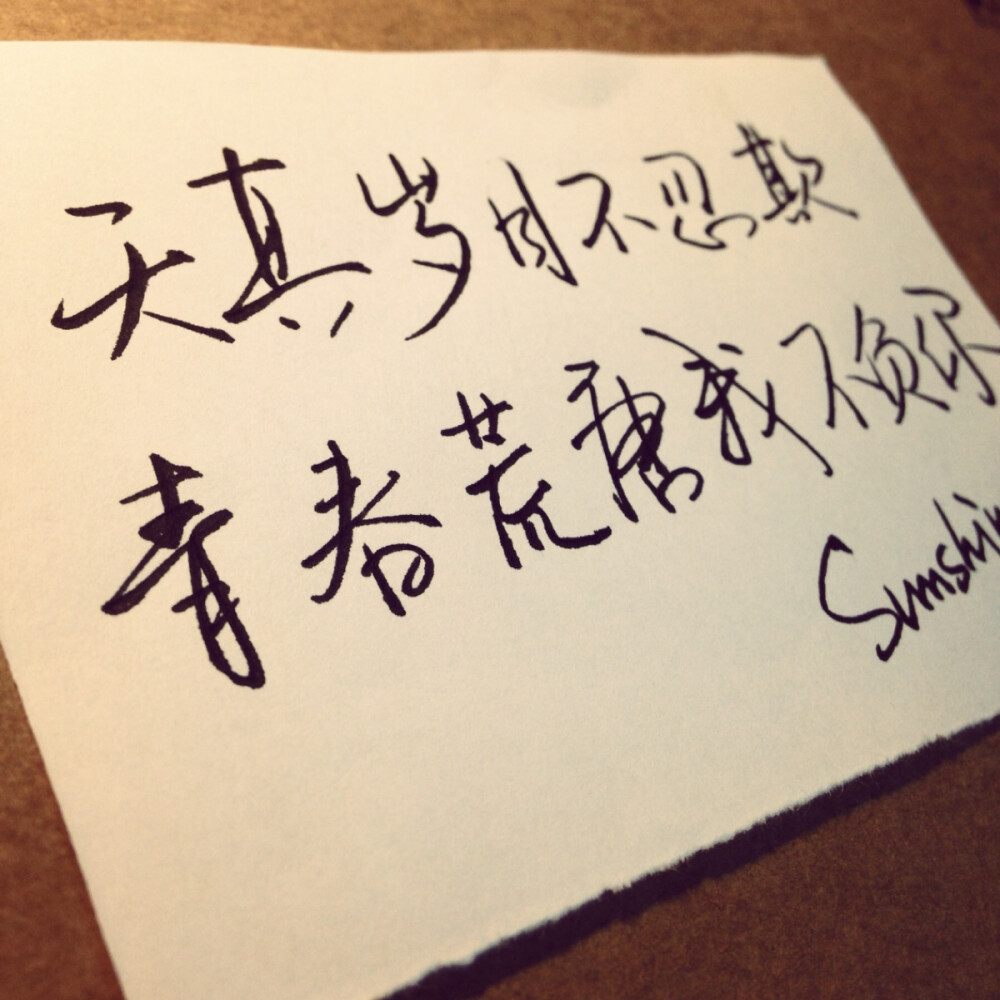 天真岁月不忍欺
青春荒唐我不负你
Sunshin